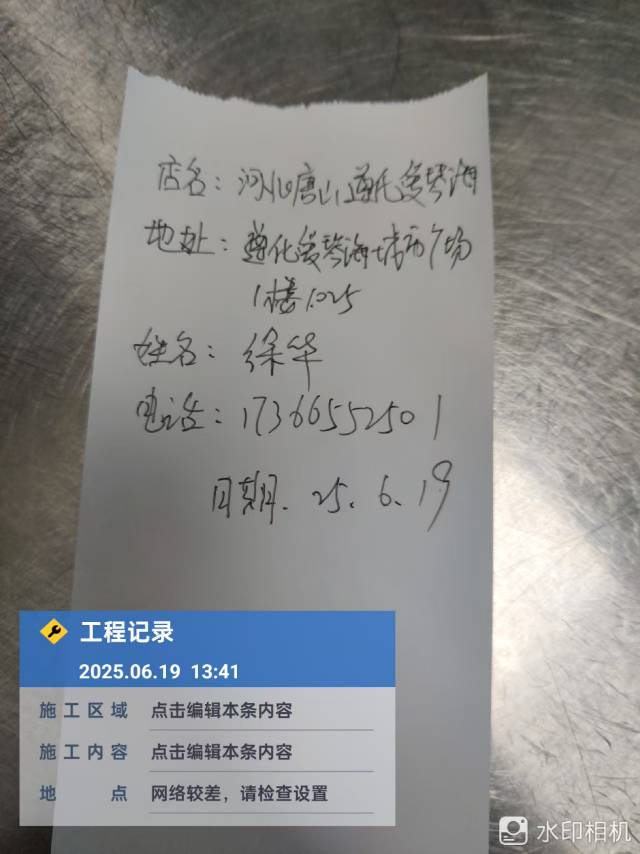 店名：河北唐山遵化爱琴海
地址：遵化爱琴海城市广场
1楼1025
姓名：徐华
电话：17366552501
日期.25.6.19
工程记录
2025.06.19 13:41
施工区域 点击编辑本条内容
施工内容 点击编辑本条内容
地点 网络较差，请检查设置
水印相机